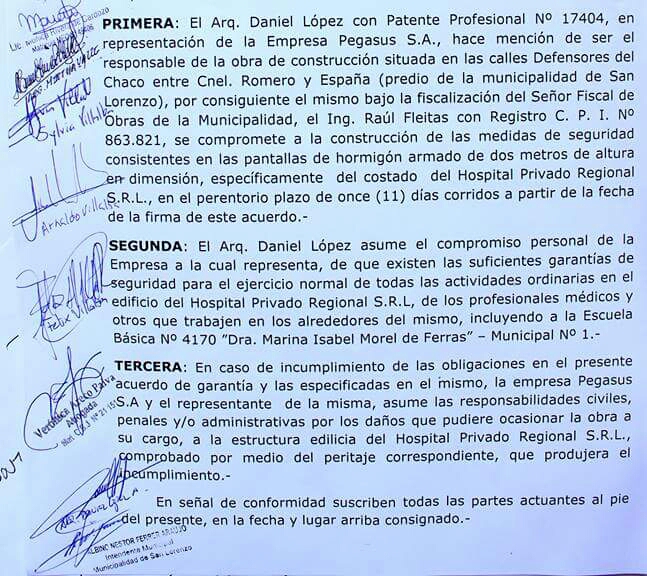 PRIMERA: El Arq. Daniel López con Patente Profesional Nº 17404, en
representación de la Empresa Pegasus S.A., hace mención de ser el
responsable de la obra de construcción situada en las calles Defensores del
Chaco entre Cnel. Romero y España (predio de la municipalidad de San
Lorenzo), por consiguiente el mismo bajo la fiscalización del Señor Fiscal de
Obras de la Municipalidad, el Ing. Raúl Fleitas con Registro C. P. I. Nº
863.821, se compromete a la construcción de las medidas de seguridad
consistentes en las pantallas de hormigón armado de dos metros de altura
en dimensión, específicamente del costado del Hospital Privado Regional
S.R.L., en el perentorio plazo de once (11) días corridos a partir de la fecha
de la firma de este acuerdo.-
SEGUNDA: El Arq. Daniel López asume el compromiso personal de la
Empresa a la cual representa, de que existen las suficientes garantías de
seguridad para el ejercicio normal de todas las actividades ordinarias en el
edificio del Hospital Privado Regional S.R.L, de los profesionales médicos y
otros que trabajen en los alrededores del mismo, incluyendo a la Escuela
Básica Nº 4170 "Dra. Marina Isabel Morel de Ferras" – Municipal Nº 1.-
TERCERA: En caso de incumplimiento de las obligaciones en el presente
acuerdo de garantía y las especificadas en el mismo, la empresa Pegasus
S.A y el representante de la misma, asume las responsabilidades civiles,
penales y/o administrativas por los daños que pudiere ocasionar la obra a
su cargo, a la estructura edilicia del Hospital Privado Regional S.R.L.,
comprobado por medio del peritaje correspondiente, que produjera el
incumplimiento.-
En señal de conformidad suscriben todas las partes actuantes al pie
del presente, en la fecha y lugar arriba consignado.-
Sylvia Villalba
Arnaldo Villalba
Felix Villalba
Abogada
ALBINO NESTOR FERRER ARAUJO
Intendente Municipal
Municipalidad de San Lorenzo